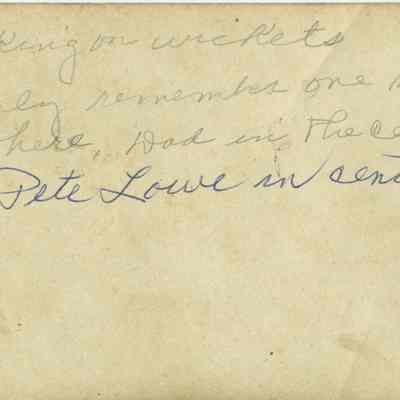 King on wickets
ly remember one
here, Dad in the ce
Pete Lowe in cent